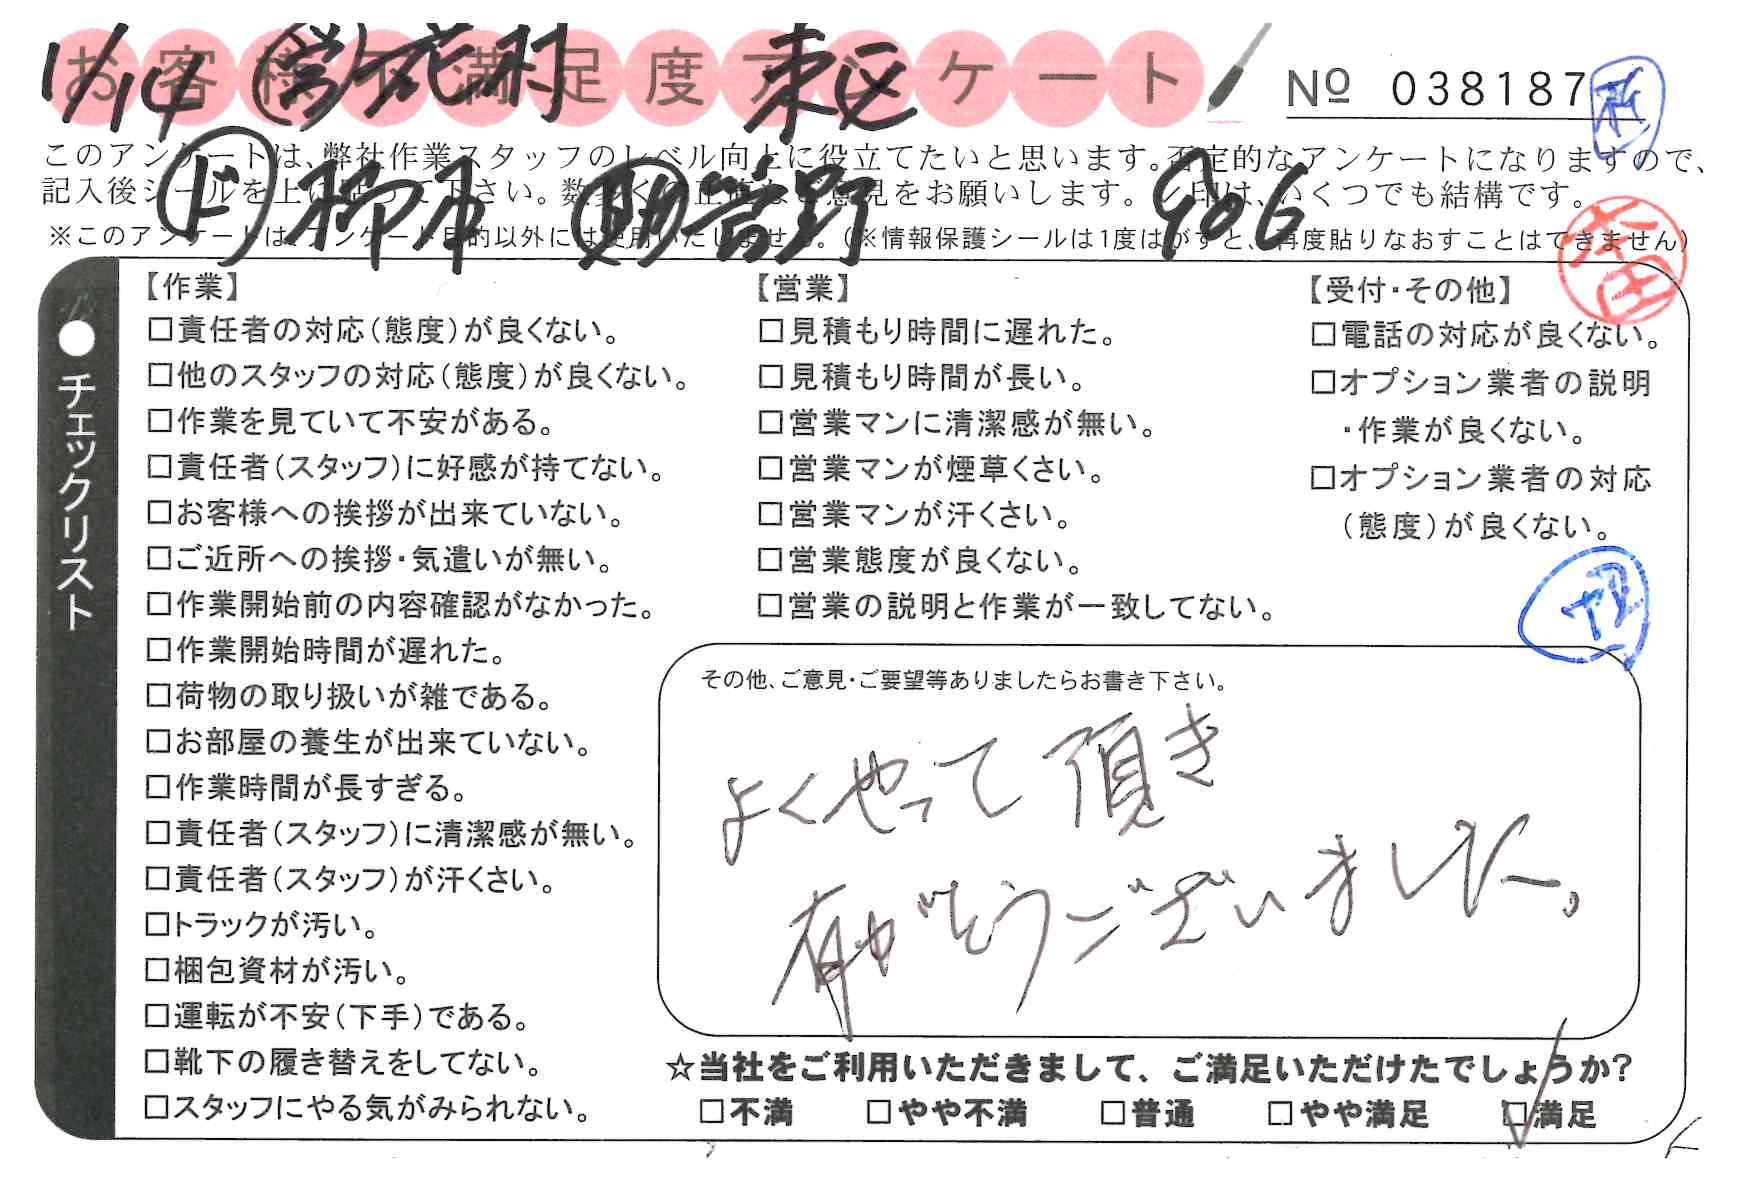 お客様不満足度アンケート
№ 038187
11/14 営 花村 東区
ド 柳市 助 菅野 906
このアンケートは、弊社作業スタッフのレベル向上に役立てたいと思います。否定的なアンケートになりますので、
記入後シールを上に貼って下さい。数多くの正直なご意見をお願いします。レ印は、いくつでも結構です。
※このアンケートは、アンケート目的以外には使用いたしません。(※情報保護シールは1度はがすと、再度貼りなおすことはできません)
本田
●チェックリスト
【作業】
□責任者の対応(態度)が良くない。
□他のスタッフの対応(態度)が良くない。
□作業を見ていて不安がある。
□責任者(スタッフ)に好感が持てない。
□お客様への挨拶が出来ていない。
□ご近所への挨拶・気遣いが無い。
□作業開始前の内容確認がなかった。
□作業開始時間が遅れた。
□荷物の取り扱いが雑である。
□お部屋の養生が出来ていない。
□作業時間が長すぎる。
□責任者(スタッフ)に清潔感が無い。
□責任者(スタッフ)が汗くさい。
□トラックが汚い。
□梱包資材が汚い。
□運転が不安(下手)である。
□靴下の履き替えをしてない。
□スタッフにやる気がみられない。
【営業】
□見積もり時間に遅れた。
□見積もり時間が長い。
□営業マンに清潔感が無い。
□営業マンが煙草くさい。
□営業マンが汗くさい。
□営業態度が良くない。
□営業の説明と作業が一致してない。
【受付・その他】
□電話の対応が良くない。
□オプション業者の説明
・作業が良くない。
□オプション業者の対応
(態度)が良くない。
その他、ご意見・ご要望等ありましたらお書き下さい。
よくやって頂き
有がとうございました。
☆当社をご利用いただきまして、ご満足いただけたでしょうか?
□不満 □やや不満 □普通 □やや満足 □満足